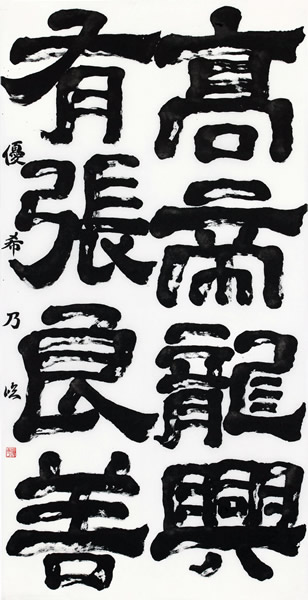 高帝龍興
有張良善
優希乃臨